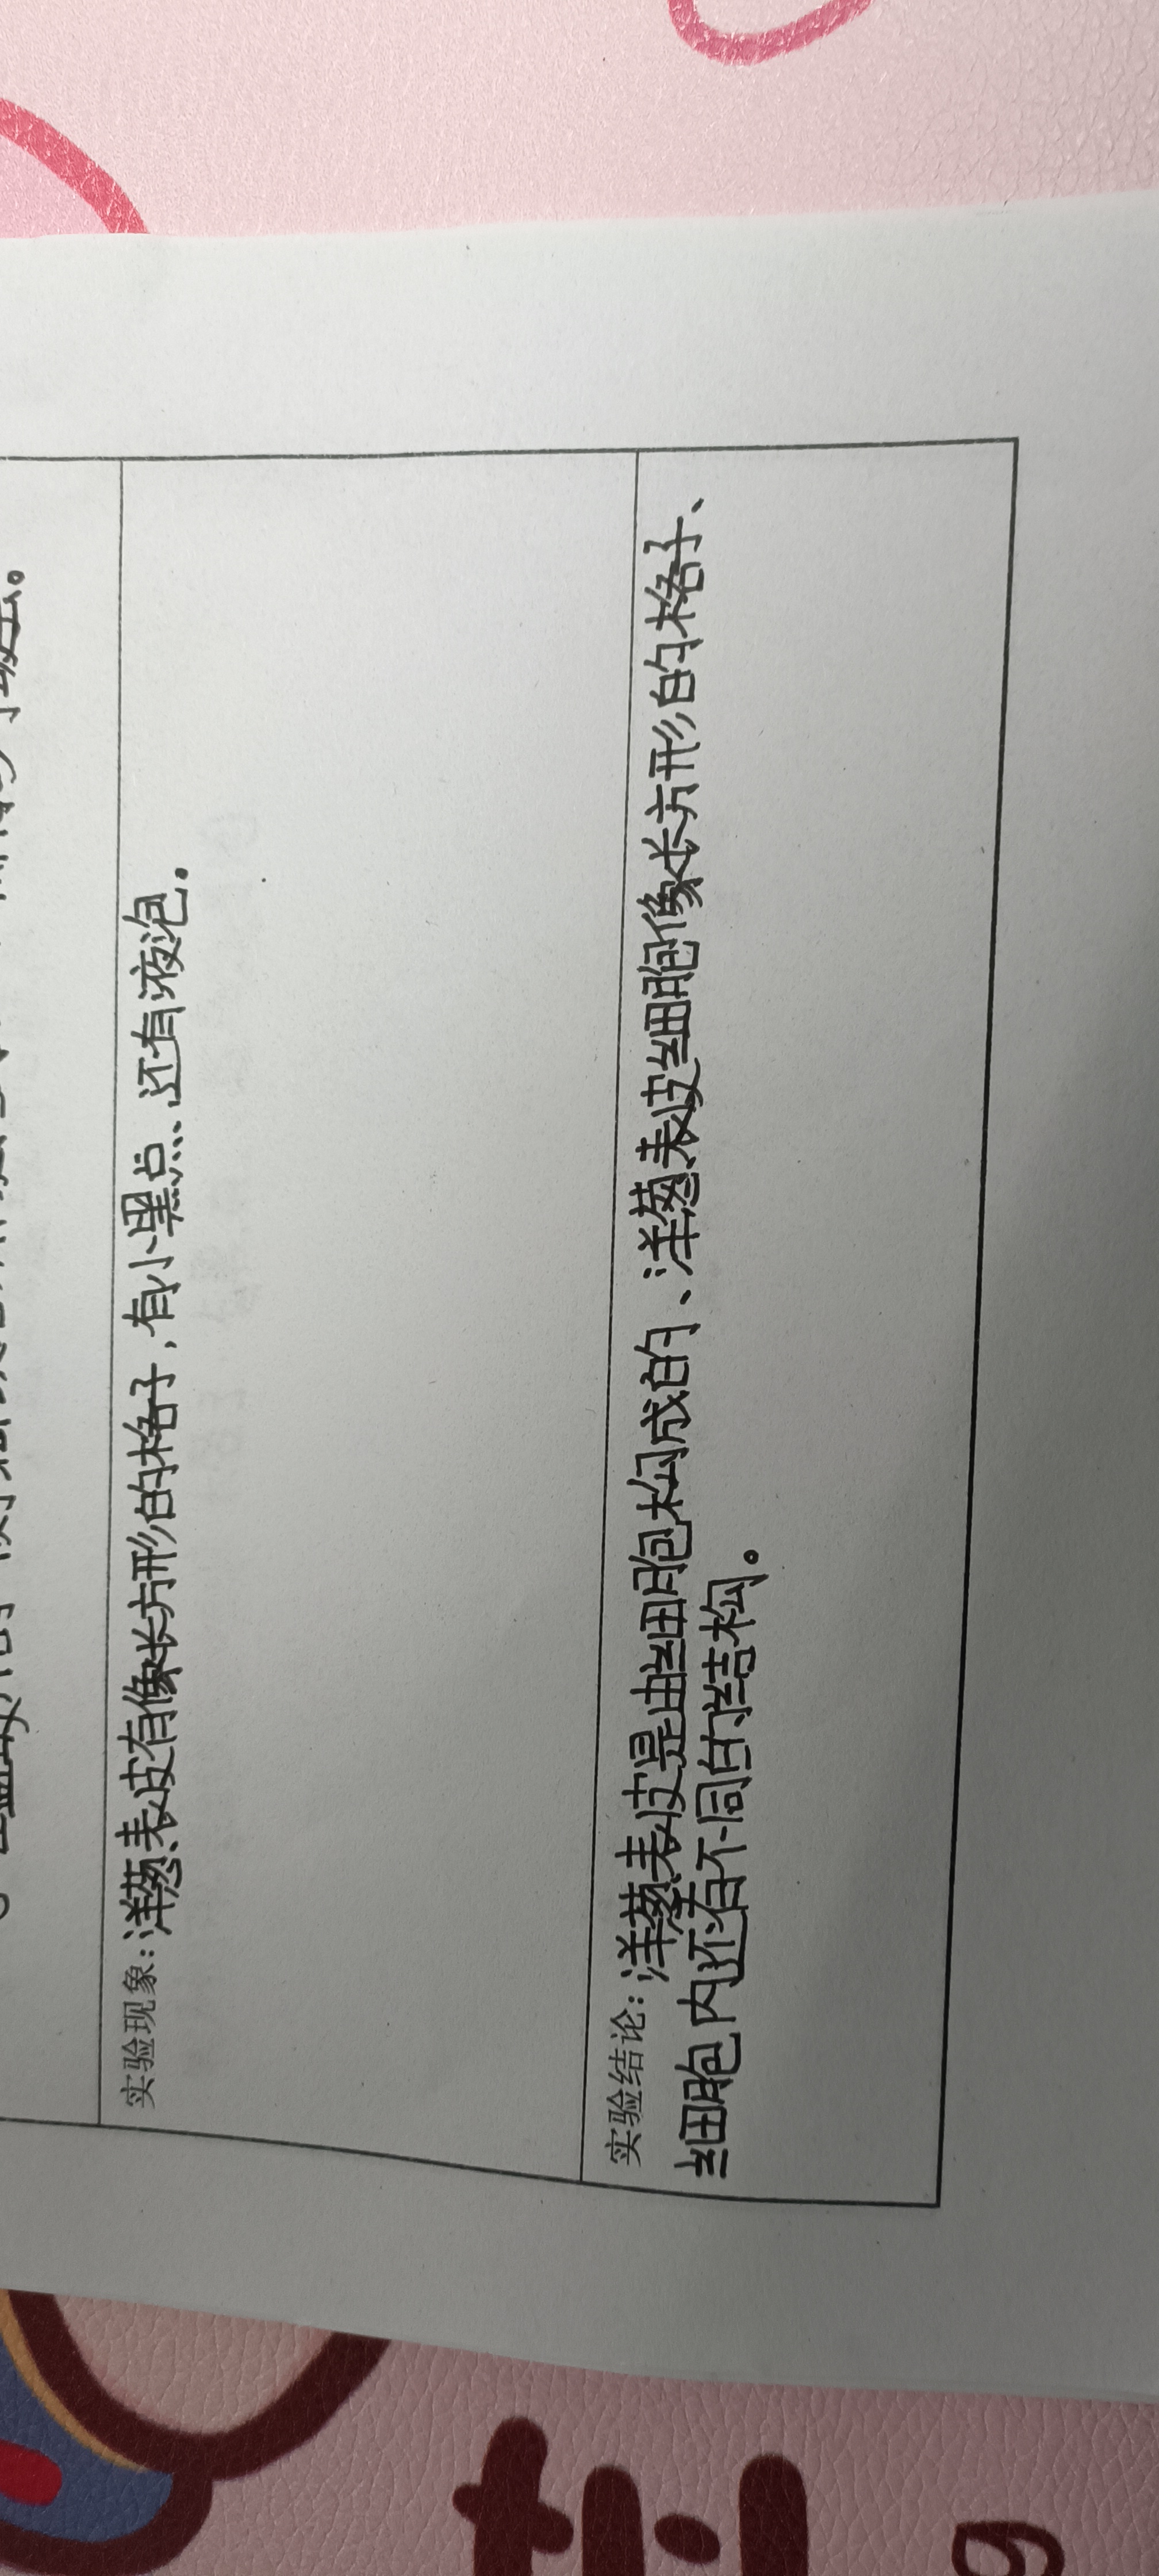 实验现象：洋葱表皮有像长方形的格子，有小黑点、还有液泡。
实验结论：洋葱表皮是由细胞构成的、洋葱表皮细胞像长方形的格子、
细胞内还有不同的结构。